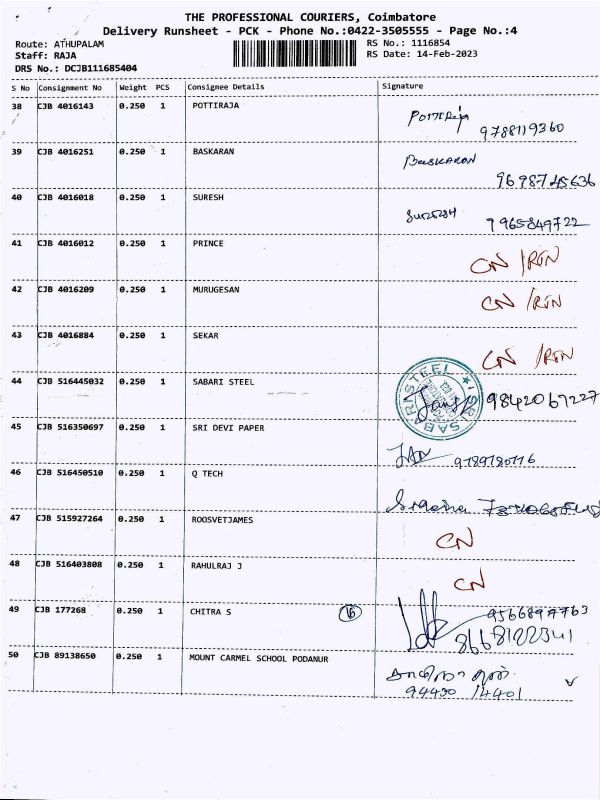 THE PROFESSIONAL COURIERS, Coimbatore
Delivery Runsheet - PCK - Phone No.:0422-3505555 - Page No.:4
Route: ATHUPALAM RS No.: 1116854
Staff: RAJA RS Date: 14-Feb-2023
DRS No.: DCJB111685404
S No Consignment No Weight PCS Consignee Details Signature
38 CJB 4016143 0.250 1 POTTIRAJA Pottiraja
9788119360
39 CJB 4016251 0.250 1 BASKARAN BASKARAN
9698745636
40 CJB 4016018 0.250 1 SURESH SURESH
9965849722
41 CJB 4016012 0.250 1 PRINCE CN /RTN
42 CJB 4016209 0.250 1 MURUGESAN CN /RTN
43 CJB 4016884 0.250 1 SEKAR CN /RTN
44 CJB 516445032 0.250 1 SABARI STEEL SABARI STEEL 9842067227
45 CJB 516350697 0.250 1 SRI DEVI PAPER
9789780776
46 CJB 516450510 0.250 1 Q TECH
47 CJB 515927264 0.250 1 ROOSVETJAMES CN
48 CJB 516403808 0.250 1 RAHULRAJ J CN
49 CJB 177268 0.250 1 CHITRA S 16 9566897763
8668122341
50 CJB 89138650 0.250 1 MOUNT CARMEL SCHOOL PODANUR
94430 14401